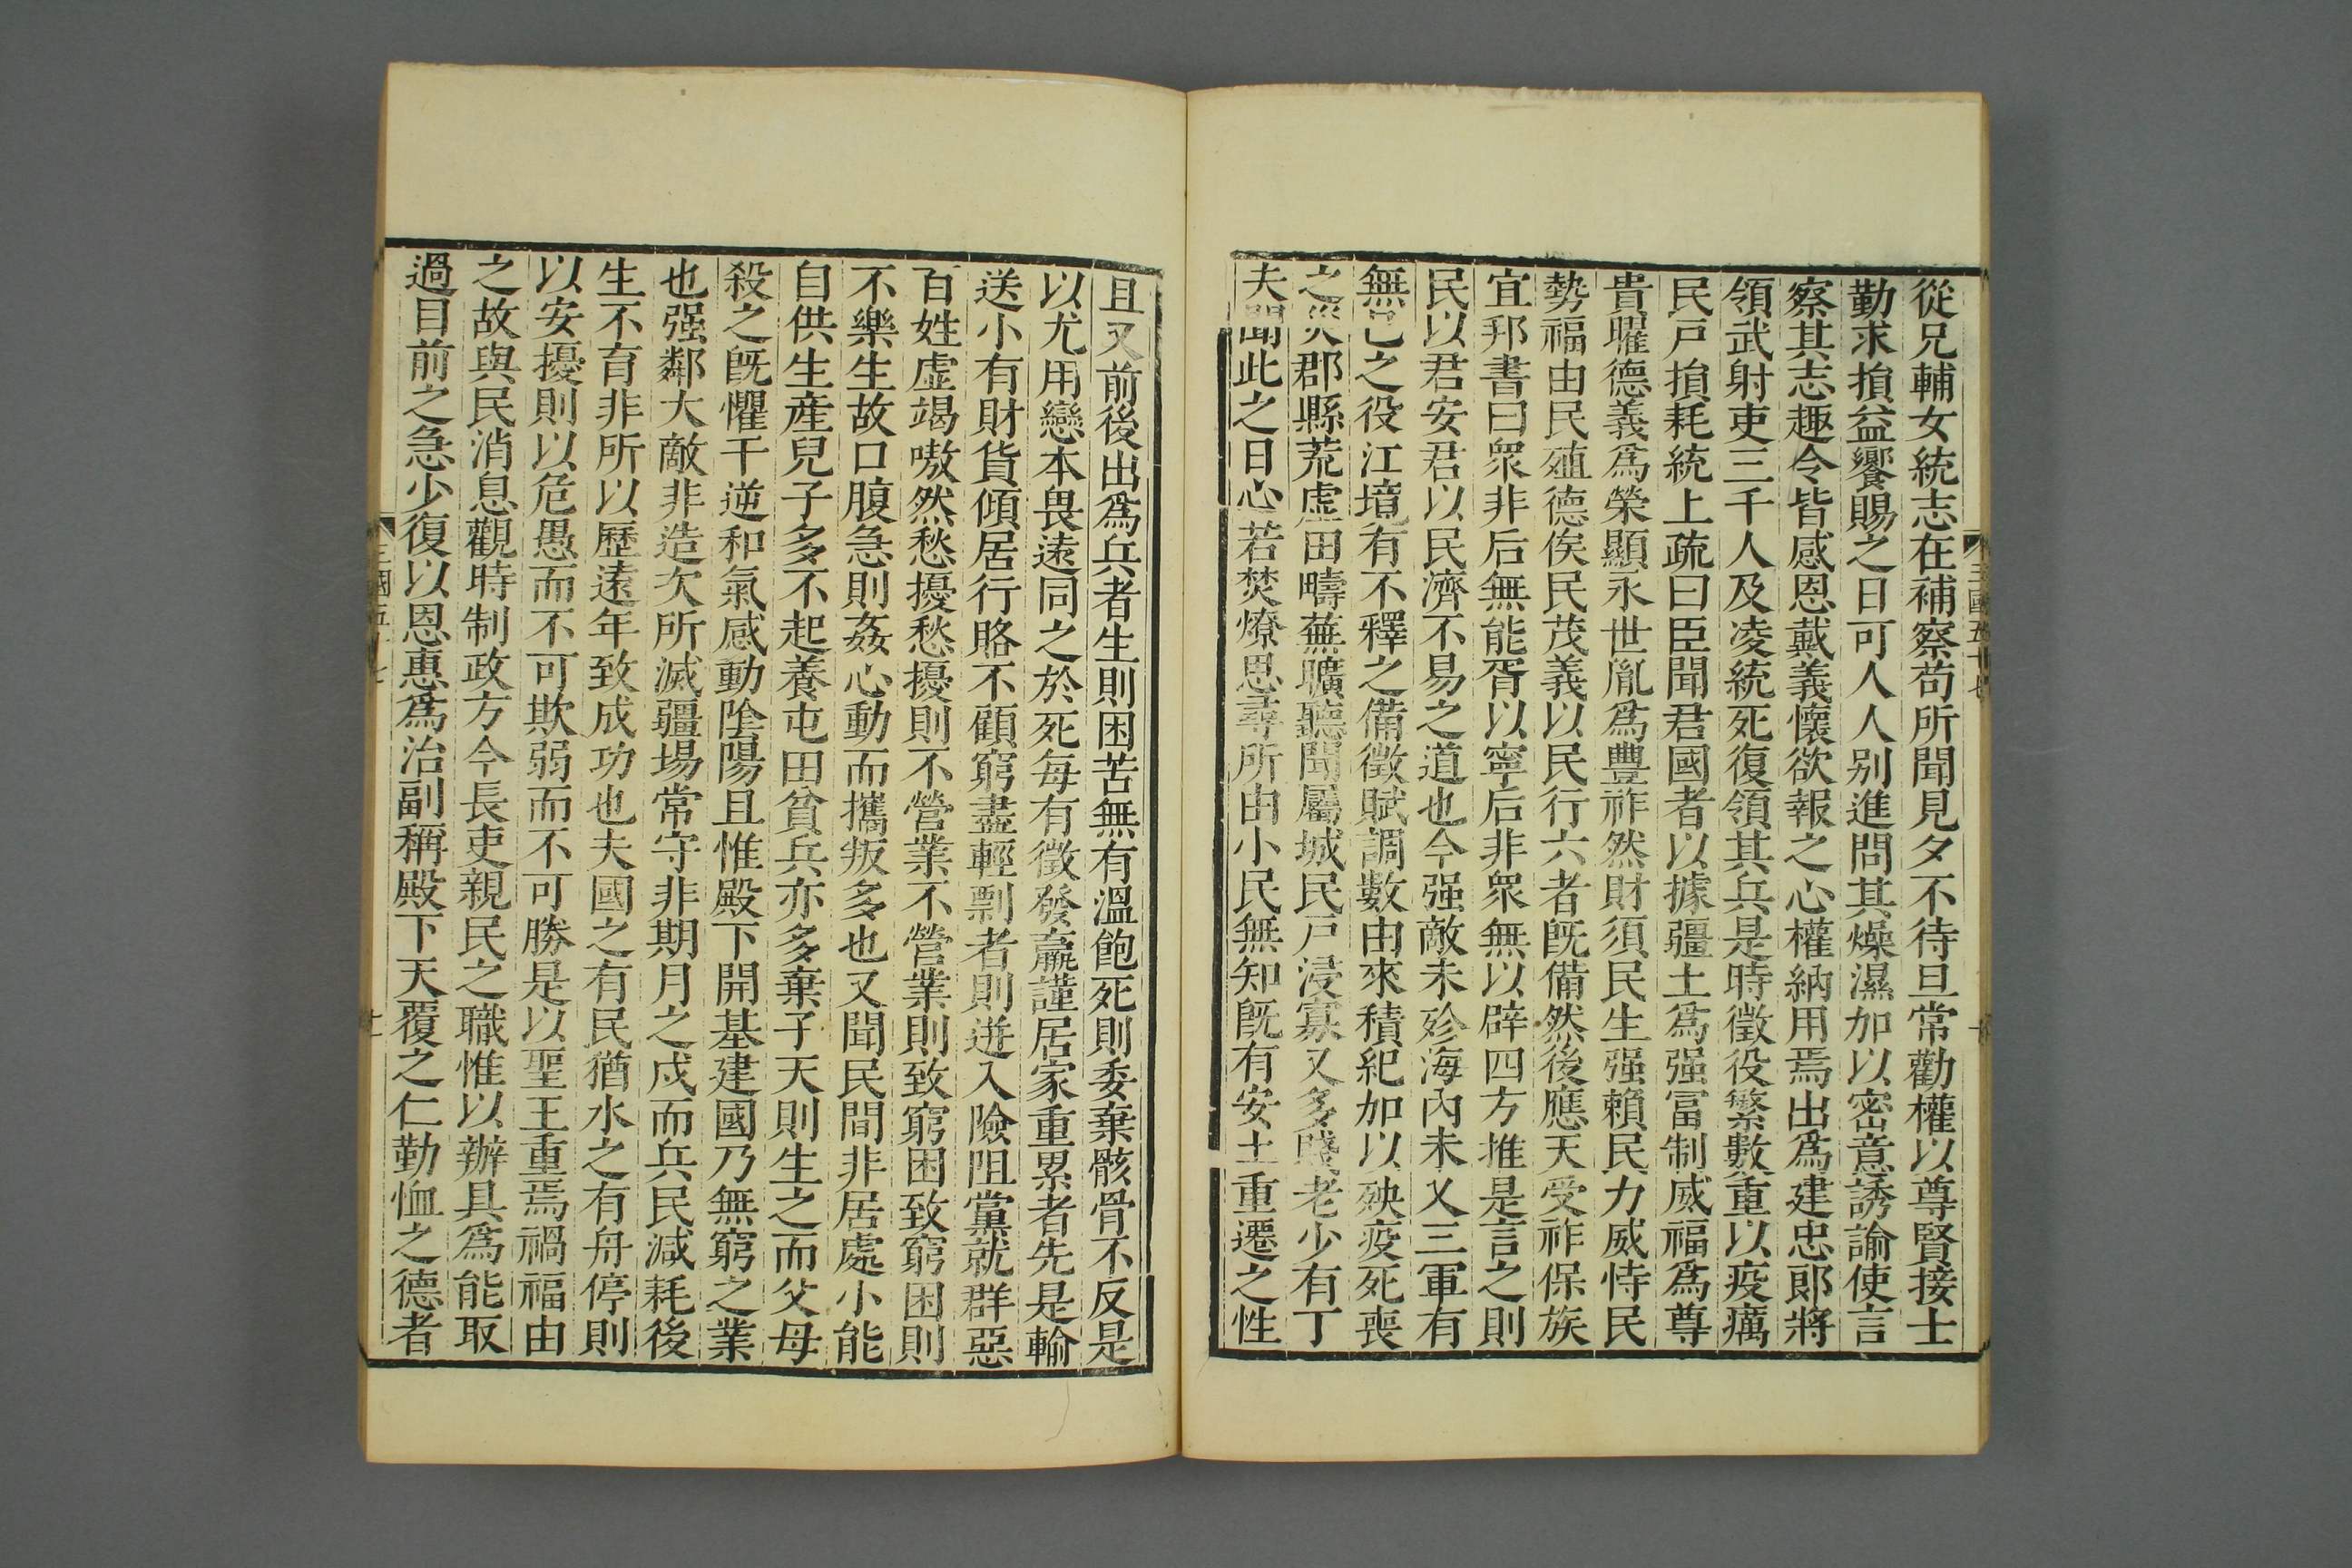 從兄輔女統志在補察苟所聞見夕不待旦常勸權以尊賢接士
勤求損益饗賜之日可人人别進問其燥濕加以密意誘諭使言
察其志趣令皆感恩戴義懷欲報之心權納用焉出爲建忠郎將
領武射吏三千人及凌統死復領其兵是時徵役繁數重以疫癘
民戸損耗統上疏曰臣聞君國者以據疆土爲强冨制威福爲尊
貴曜德義爲榮顯永世胤爲豐祚然財須民生强賴民力威恃民
勢福由民殖德俟民茂義以民行六者旣備然後應天受祚保族
宜邦書曰衆非后無能胥以寧后非衆無以辟四方推是言之則
民以君安君以民濟不易之道也今强敵未殄海內未乂三軍有
無已之役江境有不釋之備徵賦調數由來積紀加以殃疫死喪
之災郡縣荒虛田疇蕪曠聽聞屬城民戸浸寡又多殘老少有丁
夫聞此之日心若焚燎思尋所由小民無知旣有安土重遷之性
且又前後出爲兵者生則困苦無有溫飽死則委棄骸骨不反是
以尤用戀本畏遠同之於死每有徵發羸謹居家重累者先是輸
送小有財貨傾居行賂不顧窮盡輕剽者則迸入險阻黨就群惡
百姓虛竭嗷然愁擾愁擾則不營業不營業則致窮困致窮困則
不樂生故口腹急則姦心動而攜叛多也又聞民間非居處小能
自供生産兒子多不起養屯田貧兵亦多棄子天則生之而父母
殺之旣懼干逆和氣感動陰陽且惟殿下開基建國乃無窮之業
也强鄰大敵非造次所滅疆場常守非期月之戍而兵民減耗後
生不育非所以歷遠年致成功也夫國之有民猶水之有舟停則
以安擾則以危愚而不可欺弱而不可勝是以聖王重焉禍福由
之故與民消息觀時制政方今長吏親民之職惟以辦具爲能取
過目前之急少復以恩惠爲治副稱殿下天覆之仁勤恤之德者
三國五十七
十
三國五十七
十一